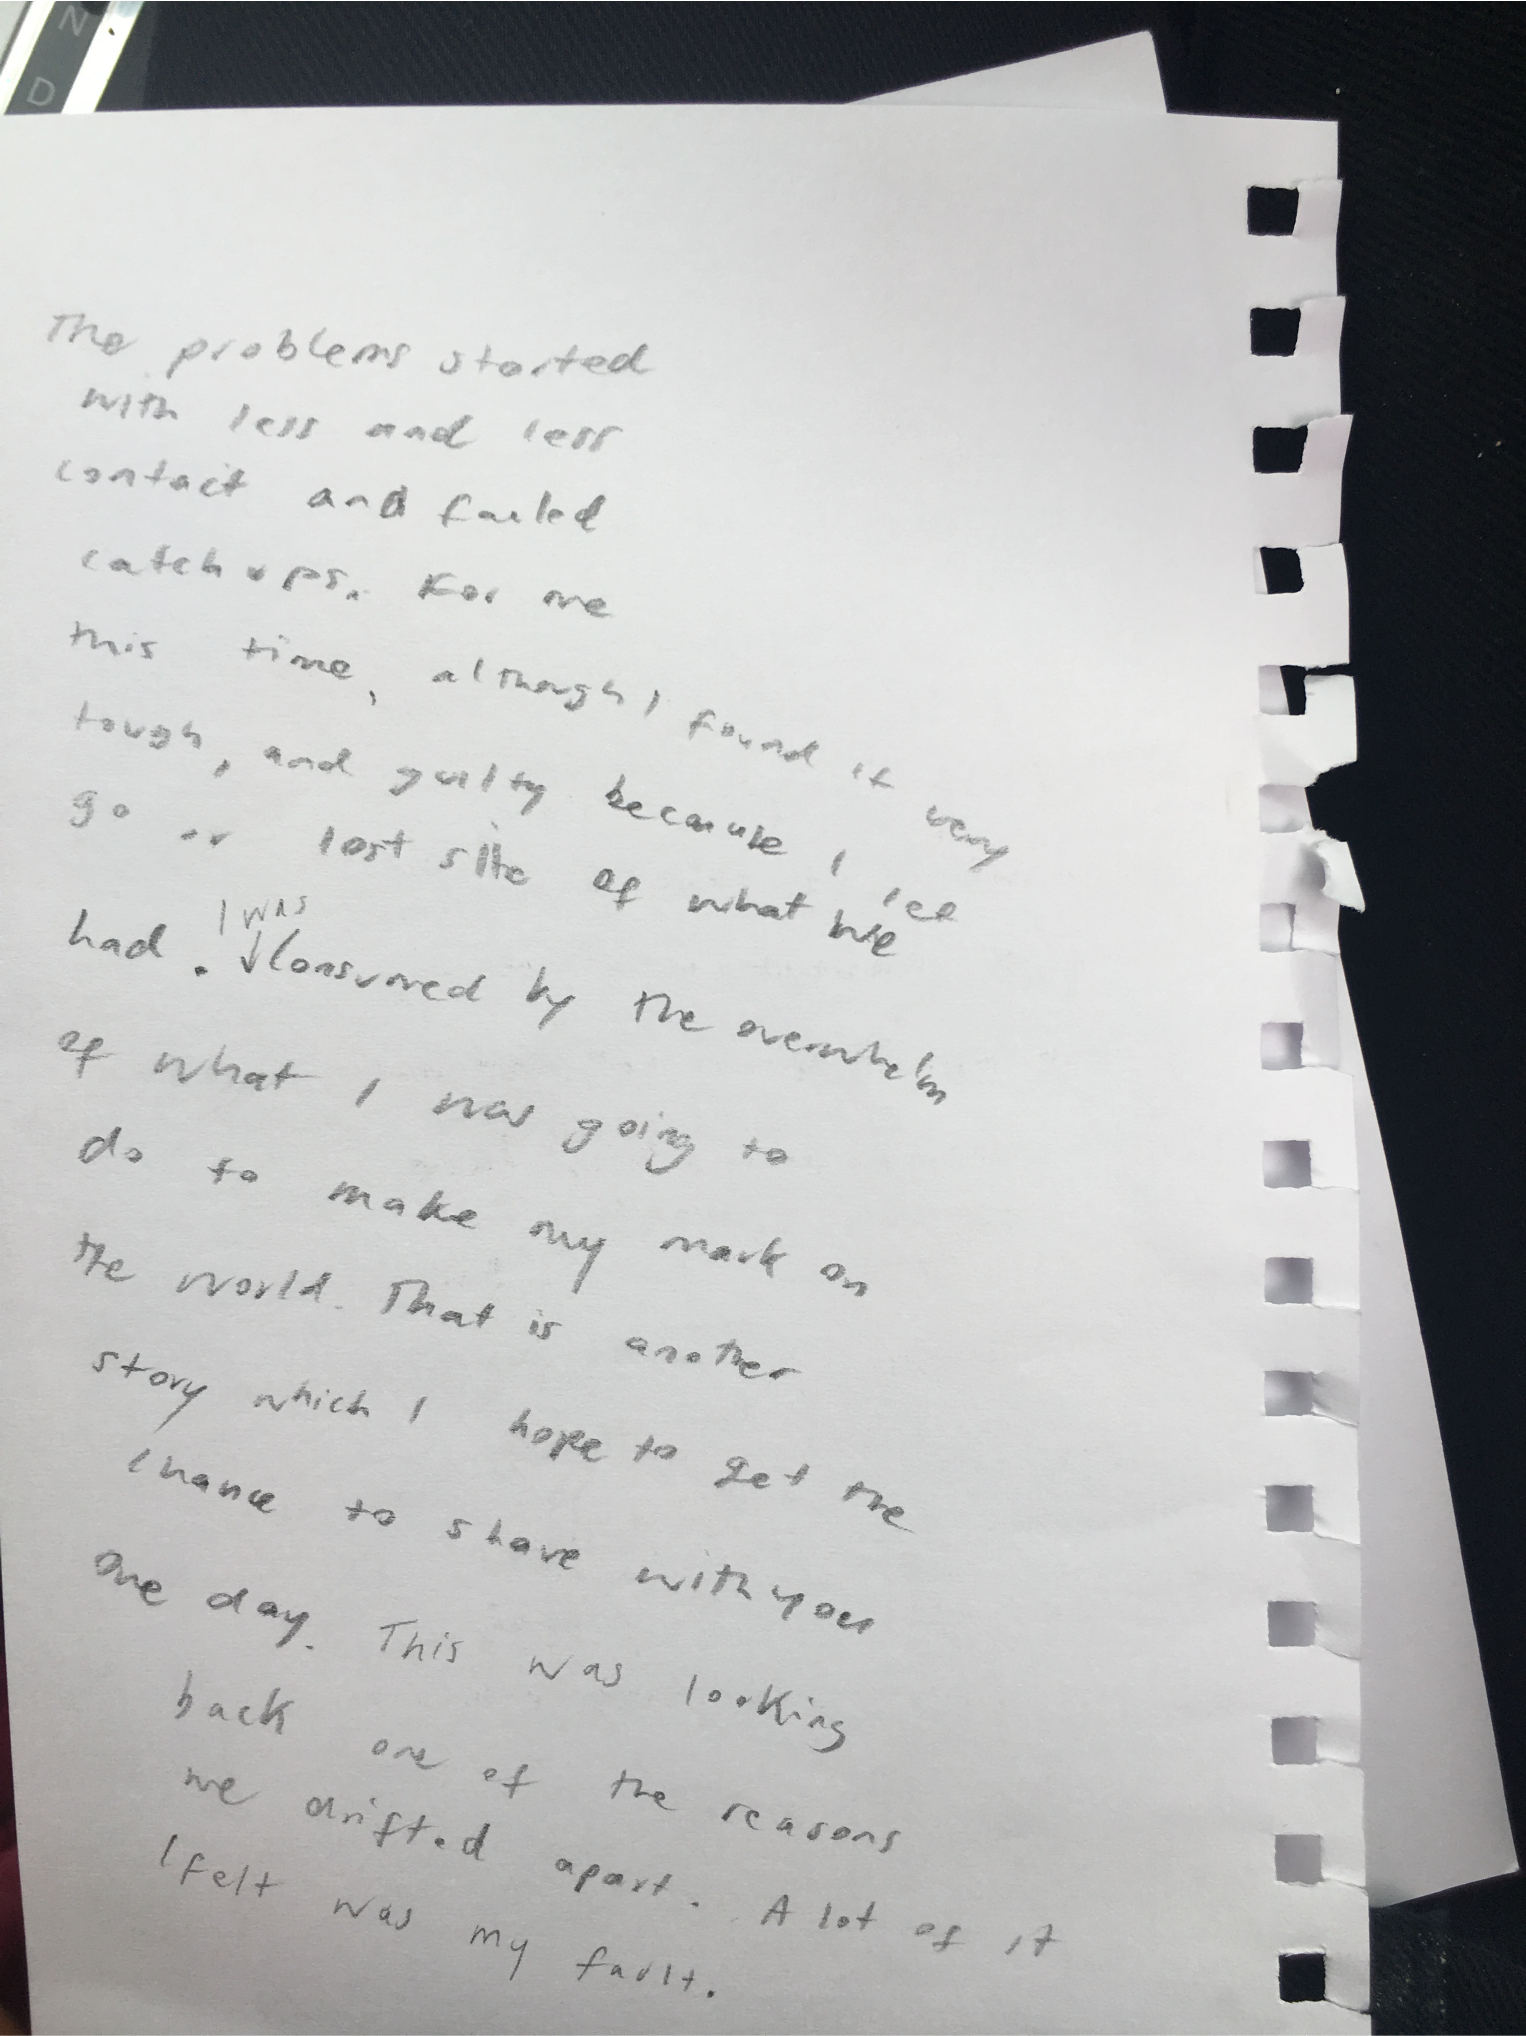 N
D
The problems started
with less and less
contact and failed
catch ups. For me
this time, although I found it very
tough, and guilty because I let
go or lost site of what we
had. I was consumed by the overwhelm
of what I was going to
do to make my mark on
the world. That is another
story which I hope to get the
chance to share with you
one day. This was looking
back one of the reasons
we drifted apart. A lot of it
I felt was my fault.